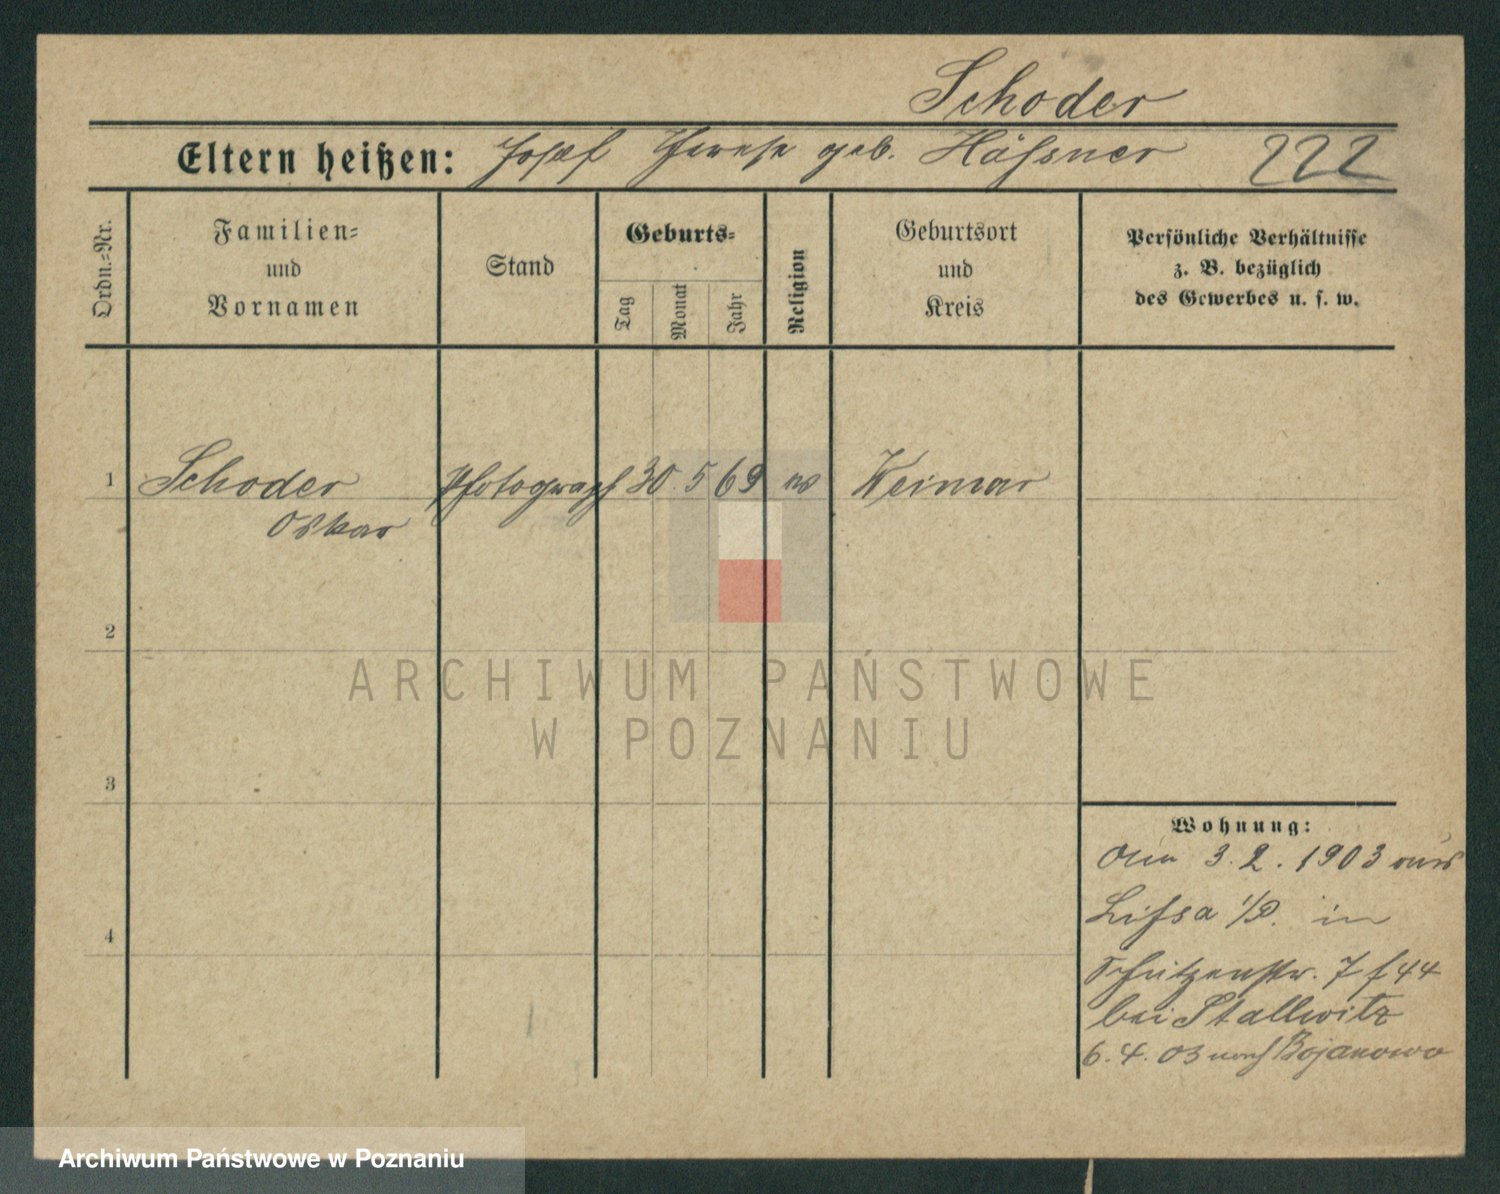 Schoder
Eltern heißen: Josef Therese geb. Häfsner
222
Ordn.-Nr.
Familien-
und
Vornamen
Stand
Geburts-
Tag
Monat
Jahr
Religion
Geburtsort
und
Kreis
Persönliche Verhältnisse
z. B. bezüglich
des Gewerbes u. s. w.
1 Schoder Photograph 30. 5 69 Weimar
Oskar
2
ARCHIWUM PAŃSTWOWE
W POZNANIU
3
Wohnung:
3. 2. 1903 aus
Lissa i/P. in
4
Schützenstr. 7 44
bei Stallwitz
6. 4. 03 nach Bojanowo
Archiwum Państwowe w Poznaniu